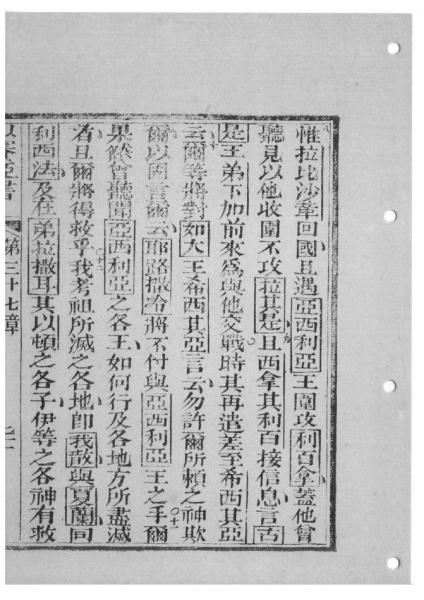 惟拉比沙等回國且遇亞西利亞王圍攻利百拿蓋他曾
聽見以他收圍不攻拉其是且西拿其利百接信息言古
是王弟下加前來為與他交戰時其再遣差至希西其亞
云爾等將對如大王希西其亞言云勿許爾所賴之神欺
爾以因言爾云耶路撒冷將不付與亞西利亞王之手爾
果然曾聽聞亞西利亞之各王如何行及各地方所盡滅
者且爾將得救乎我考祖所滅之各地即我散與夏蘭同
利西法及在弟拉撒耳其以頓之各子伊等之各神有救
以賽亞書 第三十七章